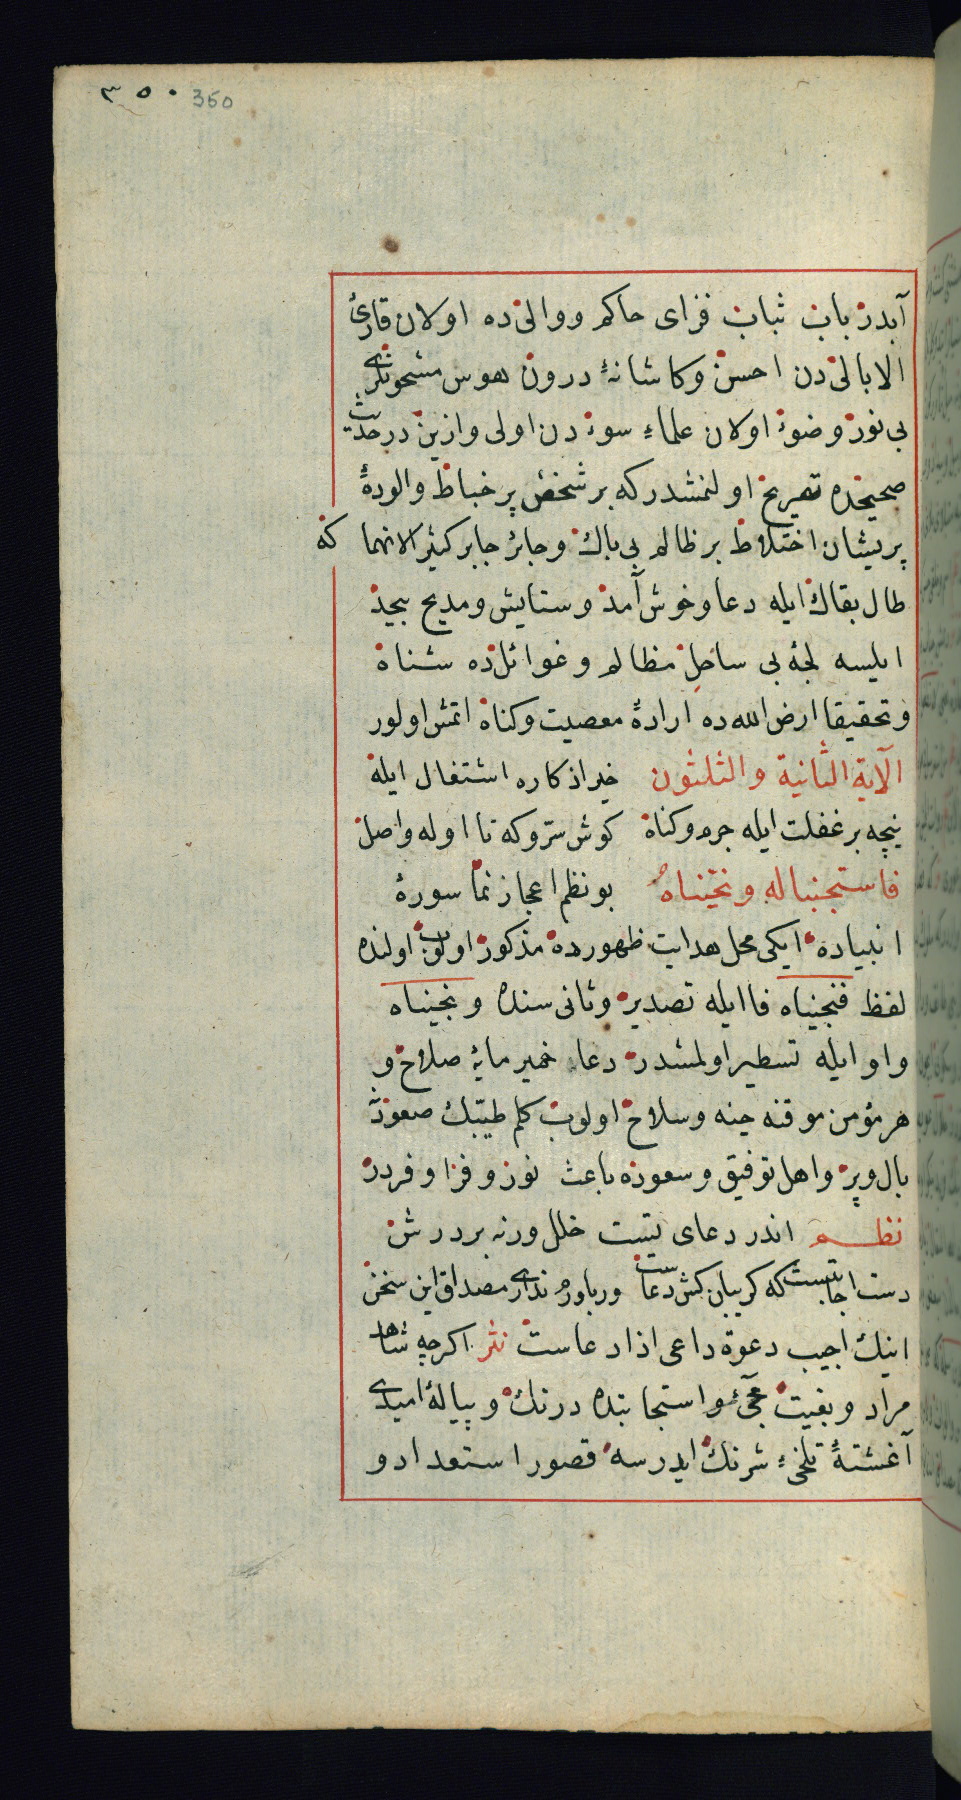 ٣٥٠ 350
آبدر باب ثبات فزای حاكم ووالی ده اولان قارئ
الابالی دن احسن وكاشانهٔ درون هوس مشحونلری
بی نور وضوء اولان علماء سوء دن اولی وازین در حدیث
صحیحده تصریح اولنمشدر كه بر شخص پر خباط والودهٔ
پریشان اختلاط بر ظالم بی باك وجائر جابر كثیر الانهماكه
طال بقاك ایله دعا وخوش آمد وستایش ومدیح بیحد
ایلیسه لجهٔ بی ساحل مظالم وغوائل ده شناه
وتحقیقا ارض الله ده ارادهٔ معصیت وكناه اتمش اولور
الآیة الثانیة والثلثون خیر اذكاره اشتغال ایله
نیچه بر غفلت ایله جرم وكناه كوش سرّ وكه تا اوله واصل
فاستجبنا له ونجّیناه بو نظم اعجاز نما سورهٔ
انبیاده ایكی محل هدایت ظهورده مذكور اولوب اولنده
لفظ فنجیناه فا ایله تصدیر وثانی سنده ونجیناه
واو ایله تسطیر اولمشدر دعا خمیر مایهٔ صلاح و
هر مؤمن موقنه جنه وسلاح اولوب كلم طیبك صعودنه
بال وپر واهل توفیق وسعوده باعث نور وفرا وفردر
نظم اندر دعای تیست خلل ورنه بر درش
دست اجابتیست كه كریبان كش دعاست ورباور نداری مصداق این سخن
اینك اجیب دعوة داعی اذا دعاست نثر اكرچه شاهد
مراد وبغیت مجیٔ واستجابتده درنك وپیالهٔ امیدی
آغشتهٔ تلخیء شرنك ایدرسه قصور استعداد و